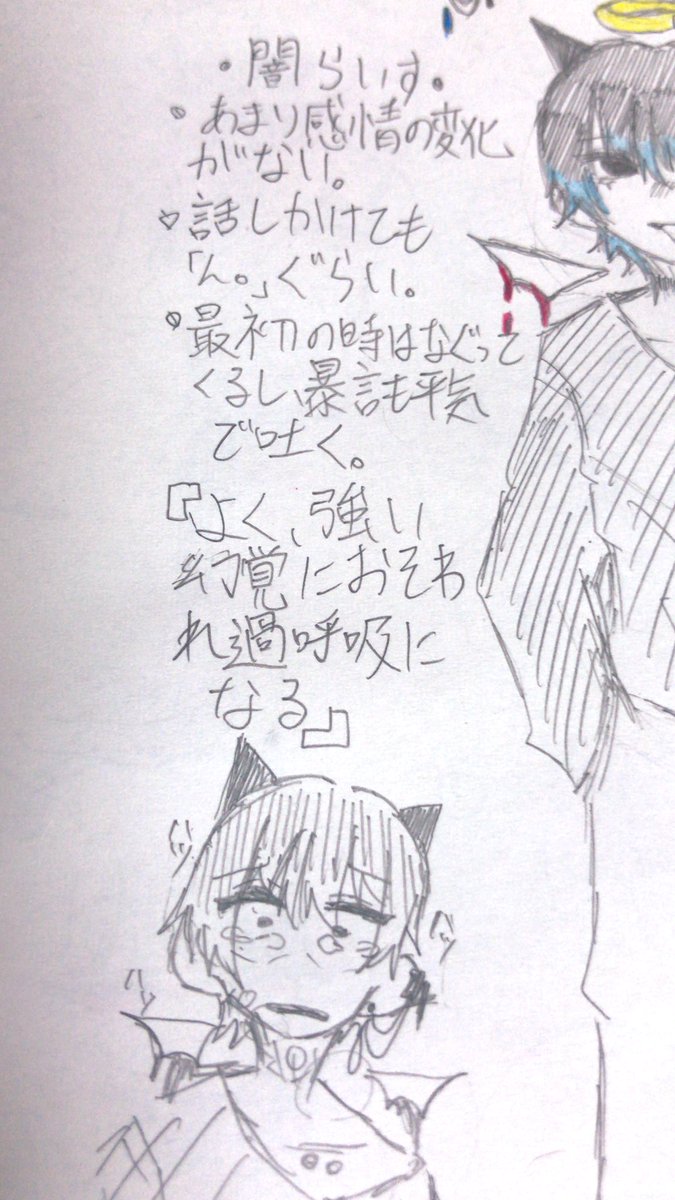 ・闇らいす・
あまり感情の変化
がない。
話しかけても
「ん。」ぐらい。
最初の時はなぐって
くるし、暴言も平気
で吐く。
『よく、強い
幻覚におそわ
れ過呼吸に
なる』
ハッ